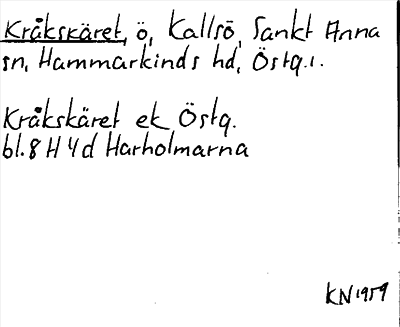 Kråkskäret, ö, Kallsö, Sankt Anna
sn, Hammarkinds hd, Östg.l.
Kråkskäret ek Östg.
bl. 8 H 4d Harholmarna
KN 1959